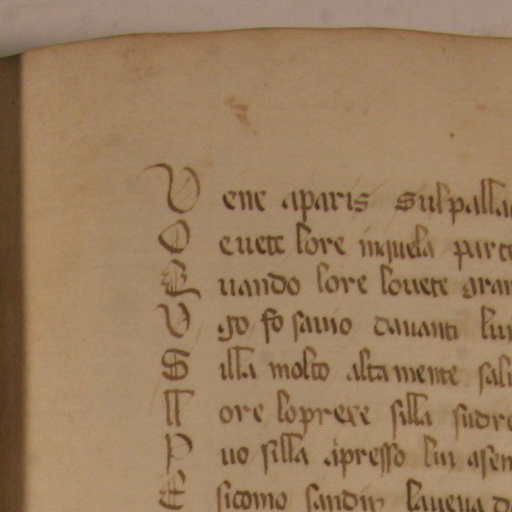 V ene aparis sul palla
O euete lore inquela parte
E uando lore louete gran
V go fo sauio dauanti lui
S illa molto altamente salu
ll ore loprexe silla sudre
P uo silla apresso lui asen
E sicomo laueua d